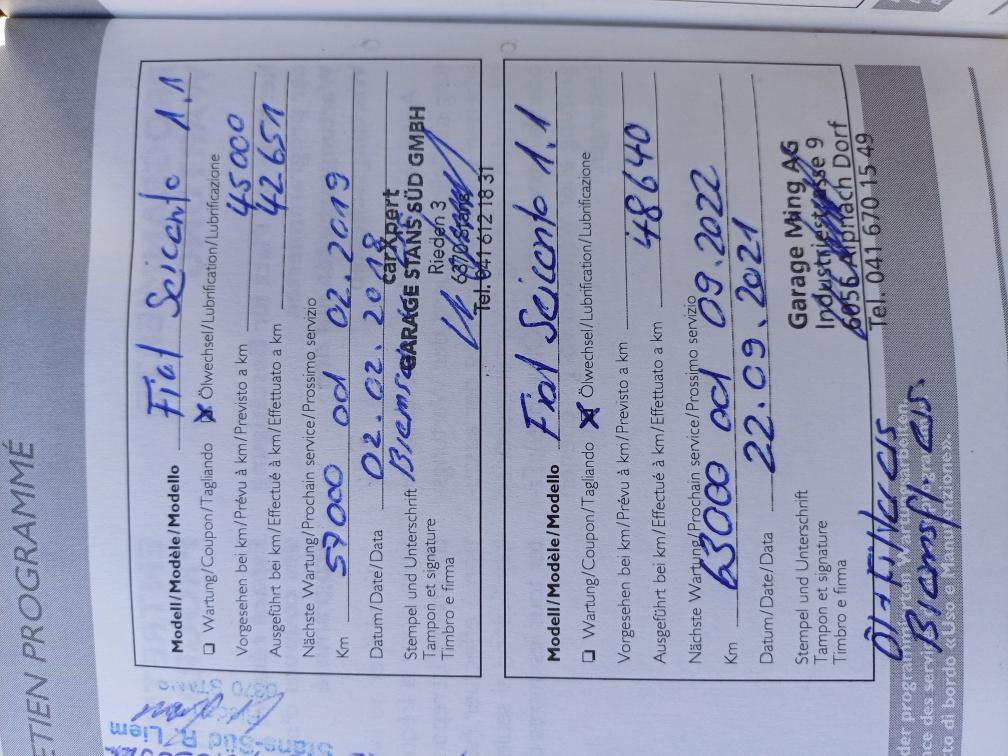 ETIEN PROGRAMMÉ
Modell/Modèle/Modello Fiat Seicento 1.1
Wartung/Coupon/Tagliando X Ölwechsel/Lubrification/Lubrificazione
Vorgesehen bei km/Prévu à km/Previsto a km 45000
Ausgeführt bei km/Effectué à km/Effettuato a km 42651
Nächste Wartung/Prochain service/Prossimo servizio
Km 57000 od 02.2019
Datum/Date/Data 02.02.2018
Stempel und Unterschrift
Tampon et signature
Timbro e firma
carXpert
GARAGE STANS SÜD GMBH
Rieden 3
6370 Stans
Tel. 041 612 18 31
Modell/Modèle/Modello Fiat Seicento 1.1
Wartung/Coupon/Tagliando X Ölwechsel/Lubrification/Lubrificazione
Vorgesehen bei km/Prévu à km/Previsto a km
Ausgeführt bei km/Effectué à km/Effettuato a km 48640
Nächste Wartung/Prochain service/Prossimo servizio
Km 63000 od 09.2022
Datum/Date/Data 22.09.2021
Stempel und Unterschrift
Tampon et signature
Timbro e firma
Garage Ming AG
Industriestrasse 9
6056 Alpnach Dorf
Tel. 041 670 15 49
Öl + Filter ers
Bremsfl. ers.
to di bordo «Uso e Manutenzione».
Stans-Süd R. Liem
6370 STANS